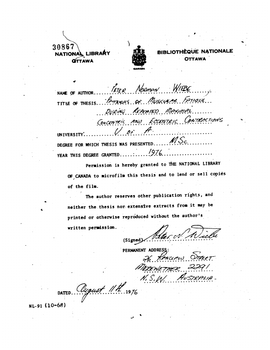 30867
NATIONAL LIBRARY
OTTAWA
BIBLIOTHÈQUE NATIONALE
OTTAWA
NAME OF AUTHOR PETER NORMAN WIEBE
TITLE OF THESIS PATTERNS OF MUSCULAR FATIGUE
DURING REPEATED MAXIMAL
CONCENTRIC AND ECCENTRIC CONTRACTIONS
UNIVERSITY U OF A
DEGREE FOR WHICH THESIS WAS PRESENTED MSc
YEAR THIS DEGREE GRANTED 1976
Permission is hereby granted to THE NATIONAL LIBRARY
OF CANADA to microfilm this thesis and to lend or sell copies
of the film.
The author reserves other publication rights, and
neither the thesis nor extensive extracts from it may be
printed or otherwise reproduced without the author's
written permission.
(Signed) Peter N Wiebe
PERMANENT ADDRESS:
26 STREET
2291
N.S.W. AUSTRALIA.
DATED August 11th 1976
NL-91 (10-68)